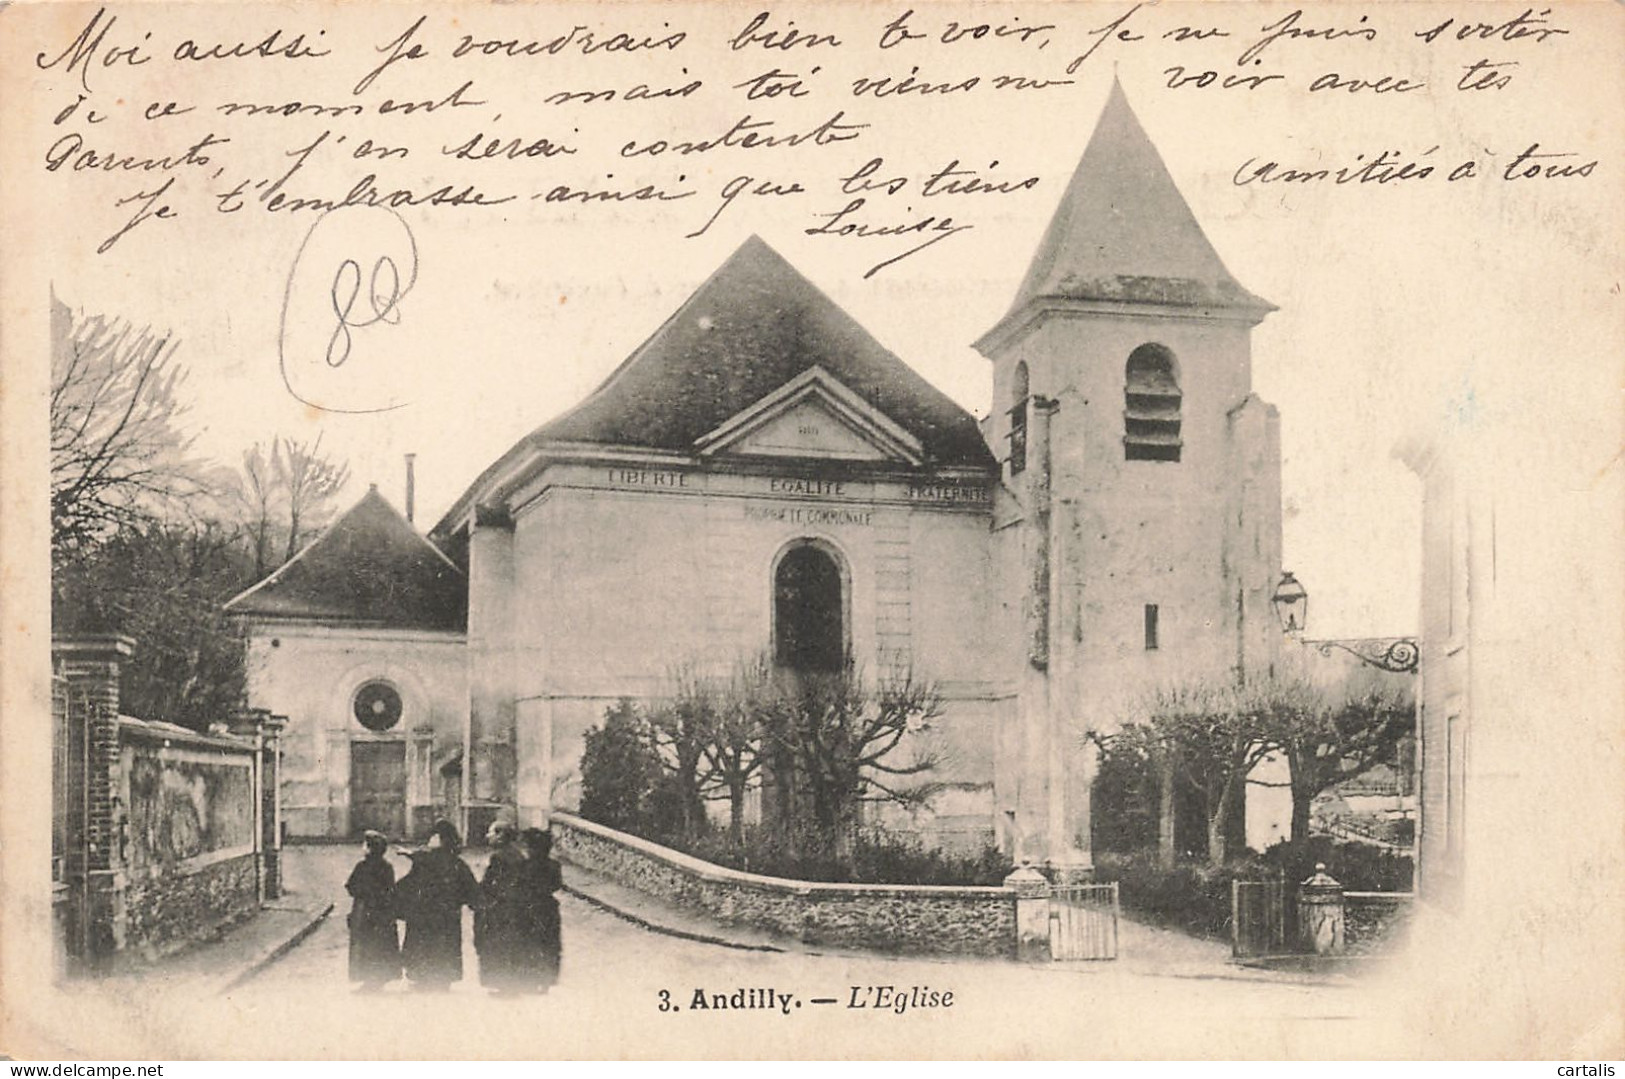 Moi aussi je voudrais bien te voir, je ne puis sortir
de ce moment, mais toi viens me voir avec tes
Parents, j'en serai contente
Je t'embrasse ainsi que les tiens
Amitiés à tous
Louise
LIBERTE EGALITE FRATERNITE
PROPRIETE COMMUNALE
3. Andilly. — L'Eglise
delcampe.net
cartalis